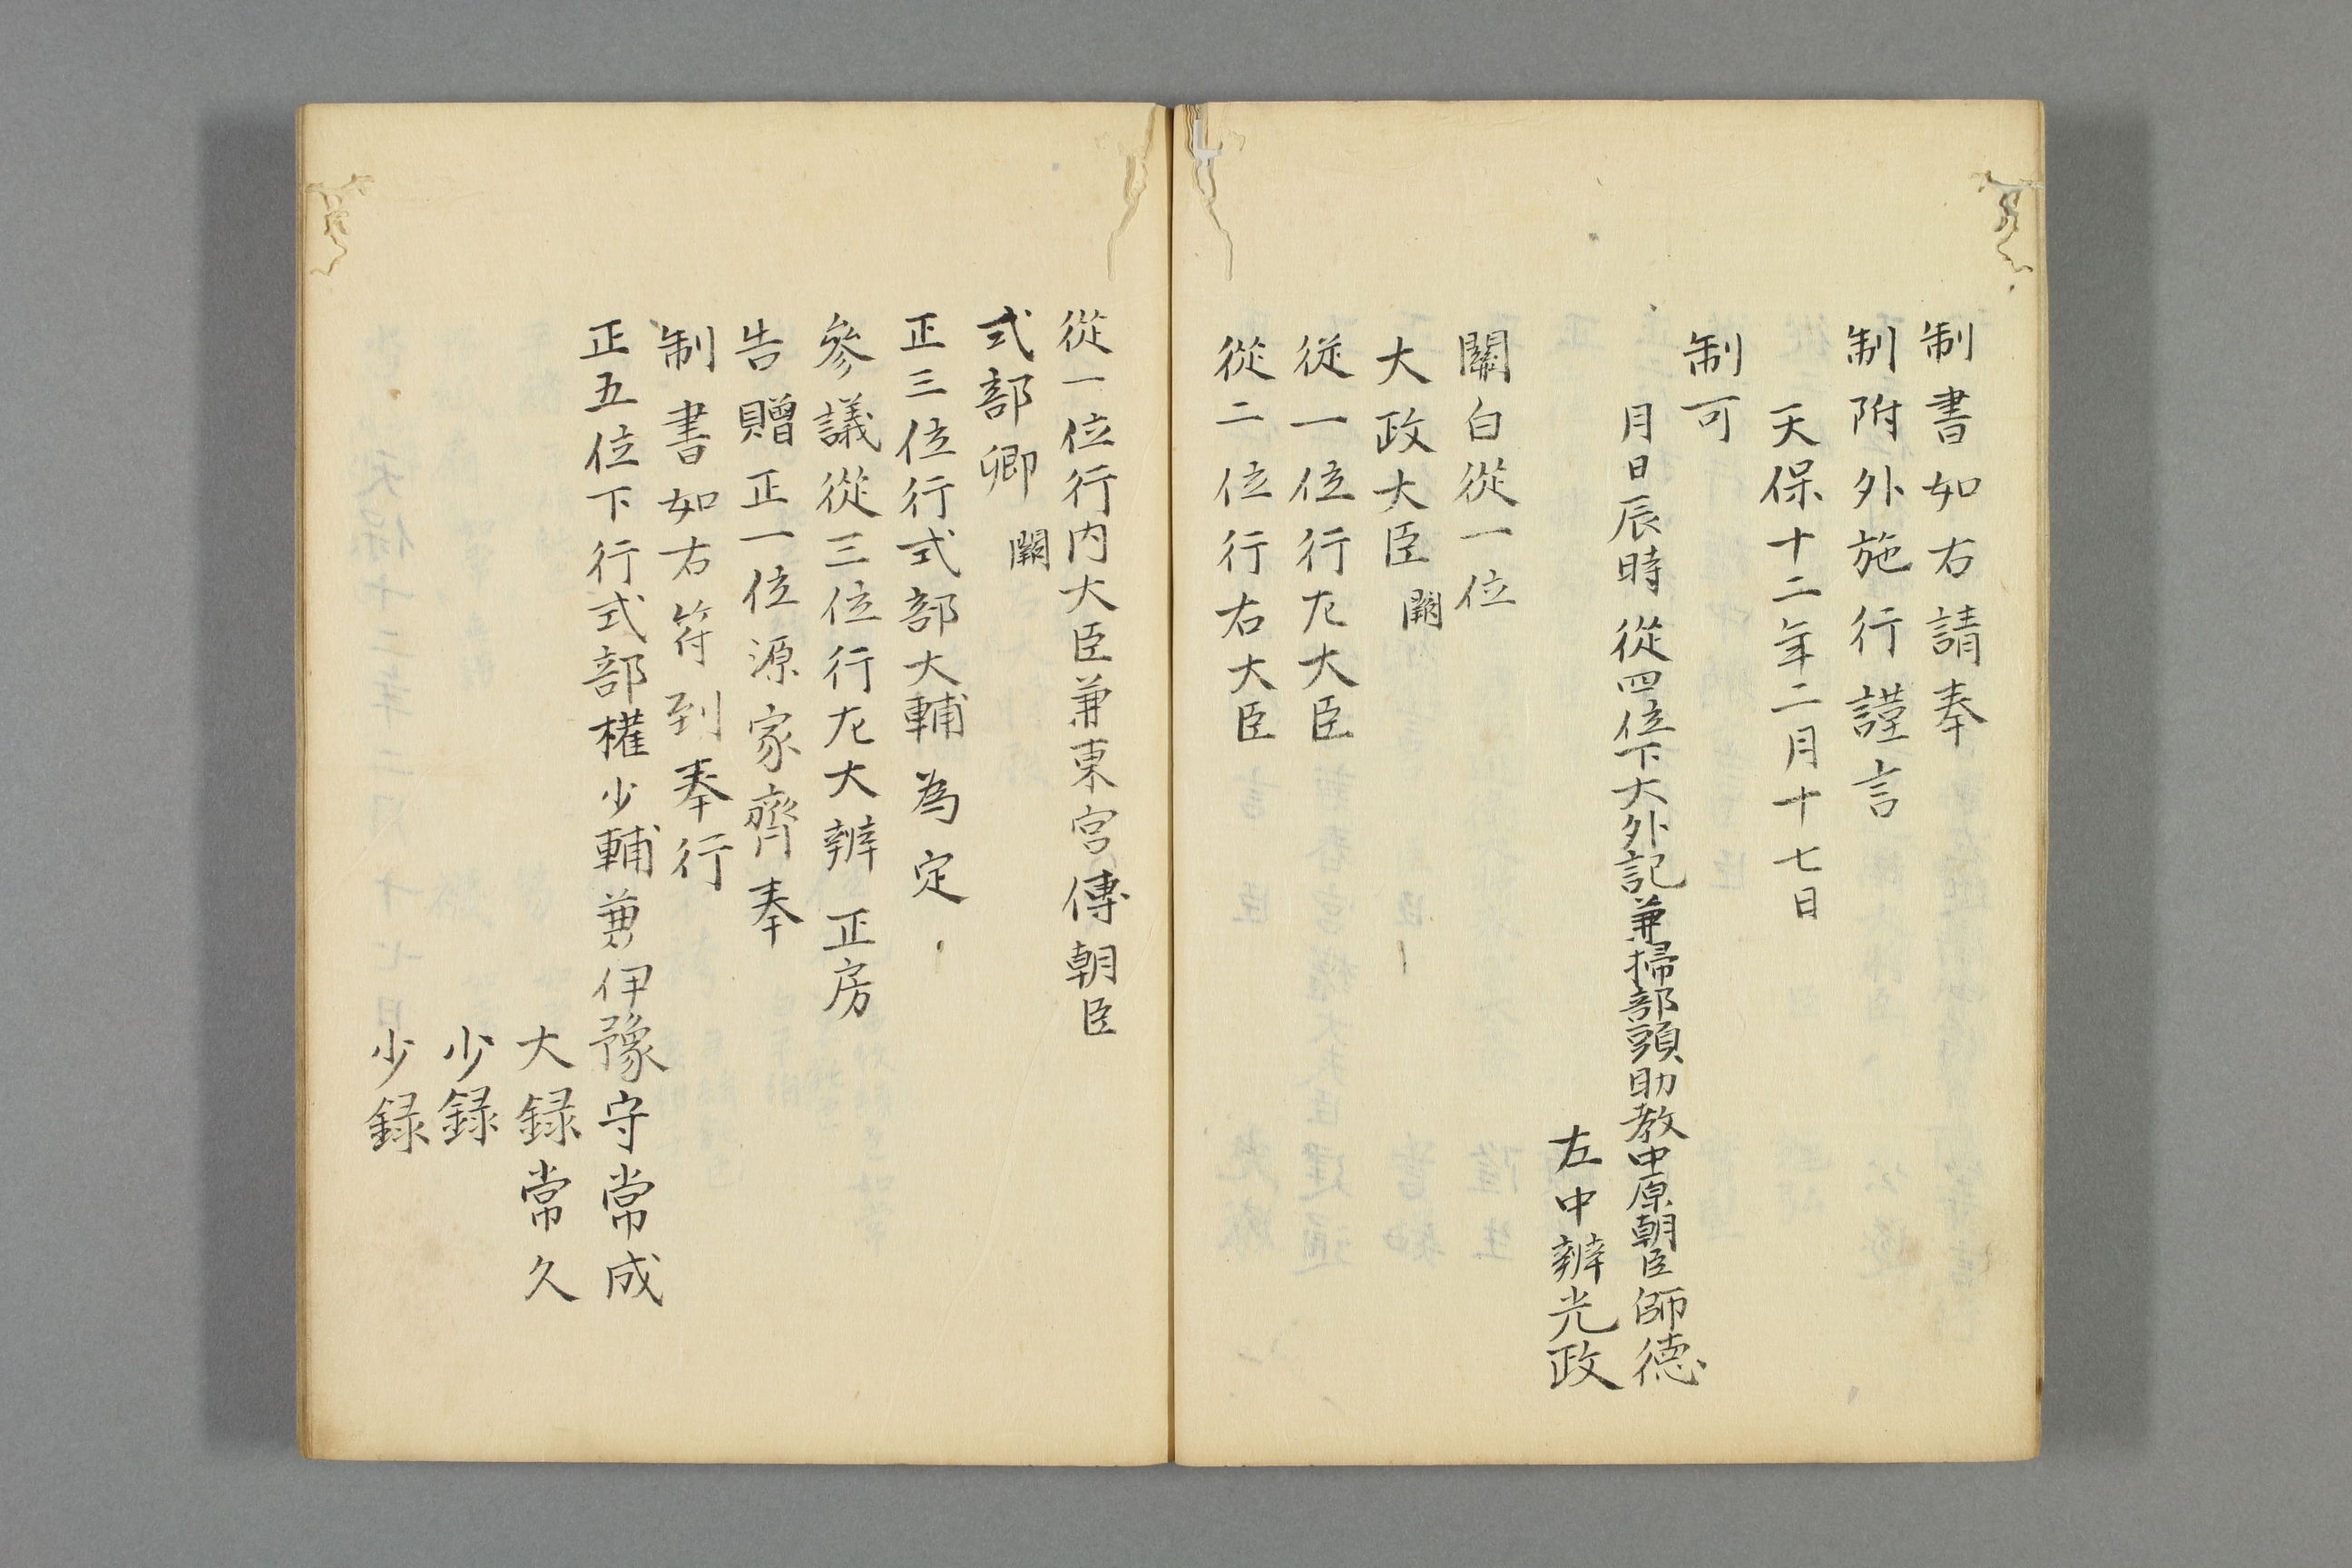 制書如右請奉
制附外施行謹言
天保十二年二月十七日
制可
月日辰時 從四位下大外記兼掃部頭助教中原朝臣師德
左中辨光政
關白從一位
大政大臣 闕
從一位行左大臣
從二位行右大臣
從一位行内大臣兼東宮傳朝臣
式部卿 闕
正三位行式部大輔為定
參議從三位行左大辨 正房
告贈正一位源家齊奉
制書如右符到奉行
正五位下行式部權少輔兼伊豫守常成
大録常久
少録
少録